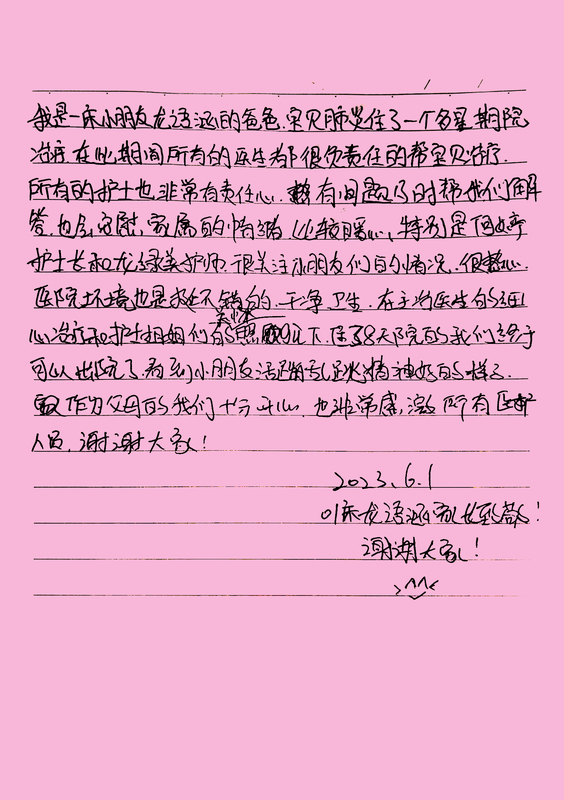 我是一床小朋友龙语涵的爸爸.宝贝肺炎住了一个多星期院
治疗在此期间所有的医生都很负责任的帮宝贝治疗.
所有的护士也非常有责任心.有问题及时帮我们解
答.也会安慰.家属的情绪 比较暖心,特别是何婷
护士长和龙绿美护师.很关注小朋友们的情况.很心.
医院环境也是挺不错的.干净卫生.在主治医生的细
心治疗和护士姐姐们的关怀照顾下.住了8天院的我们终于
可以出院了.看到小朋友活蹦乱跳精神好的样子.
作为父母的我们十分开心.也非常感激所有医护
人员.谢谢大家!
2023.6.1
01床龙语涵家长致敬!
谢谢大家!
^^